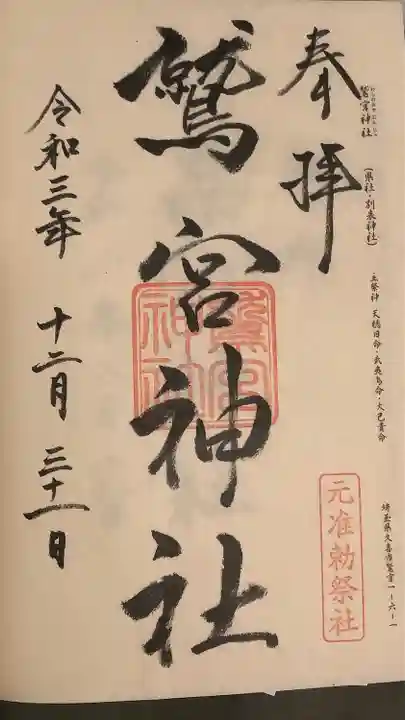 鷲宮神社
(県社・別表神社)
主祭神 天穂日命・武夷鳥命・大己貴命
埼玉県久喜市鷲宮一ー六ー一
奉拝
元准勅祭社
鷲宮神社
鷲宮神社
令和三年 十二月 三十一日